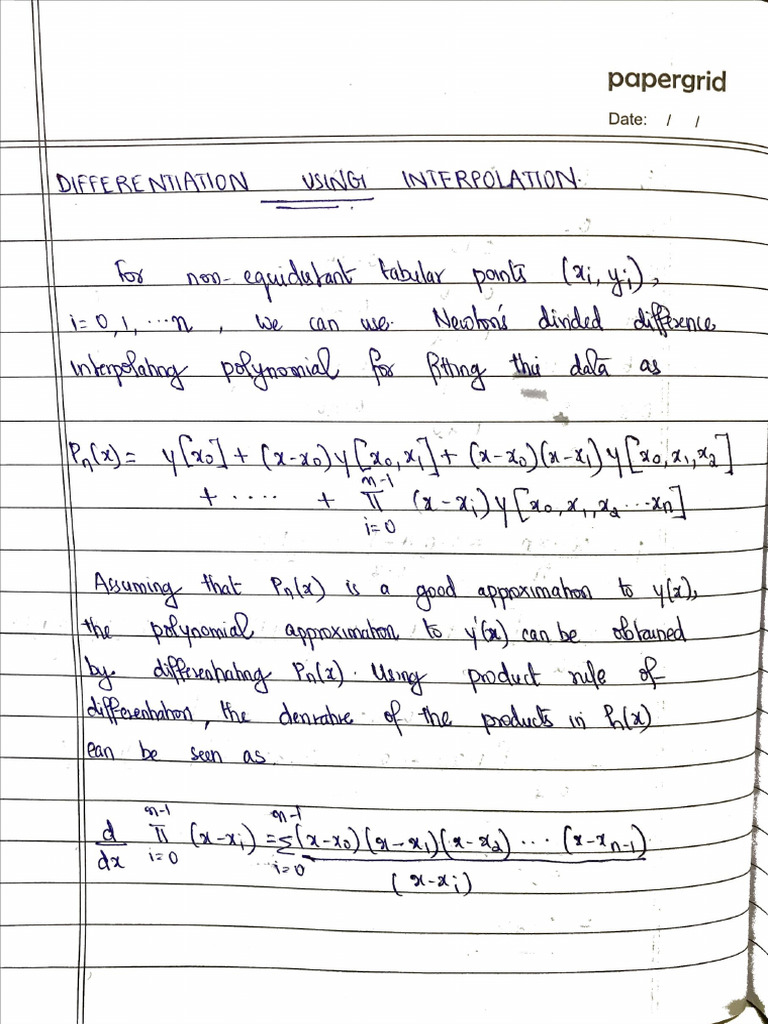 papergrid
Date: / /
DIFFERENTIATION USING INTERPOLATION.
For non-equidistant tabular points (xi, yi),
i=0,1,...n, we can use Newton's divided difference
interpolating polynomial for fitting the data as
Pn(x) = y[x0] + (x-x0)y[x0,x1] + (x-x0)(x-x1)y[x0,x1,x2]
+ .... + n-1 π i=0 (x-xi)y[x0,x1,x2...xn]
Assuming that Pn(x) is a good approximation to y(x),
the polynomial approximation to y'(x) can be obtained
by differentiating Pn(x). Using product rule of
differentiation, the derivative of the products in Pn(x)
can be seen as
d/dx n-1 π i=0 (x-xi) = n-1 Σ i=0 (x-x0)(x-x1)(x-x2)...(x-xn-1)
(x-xi)